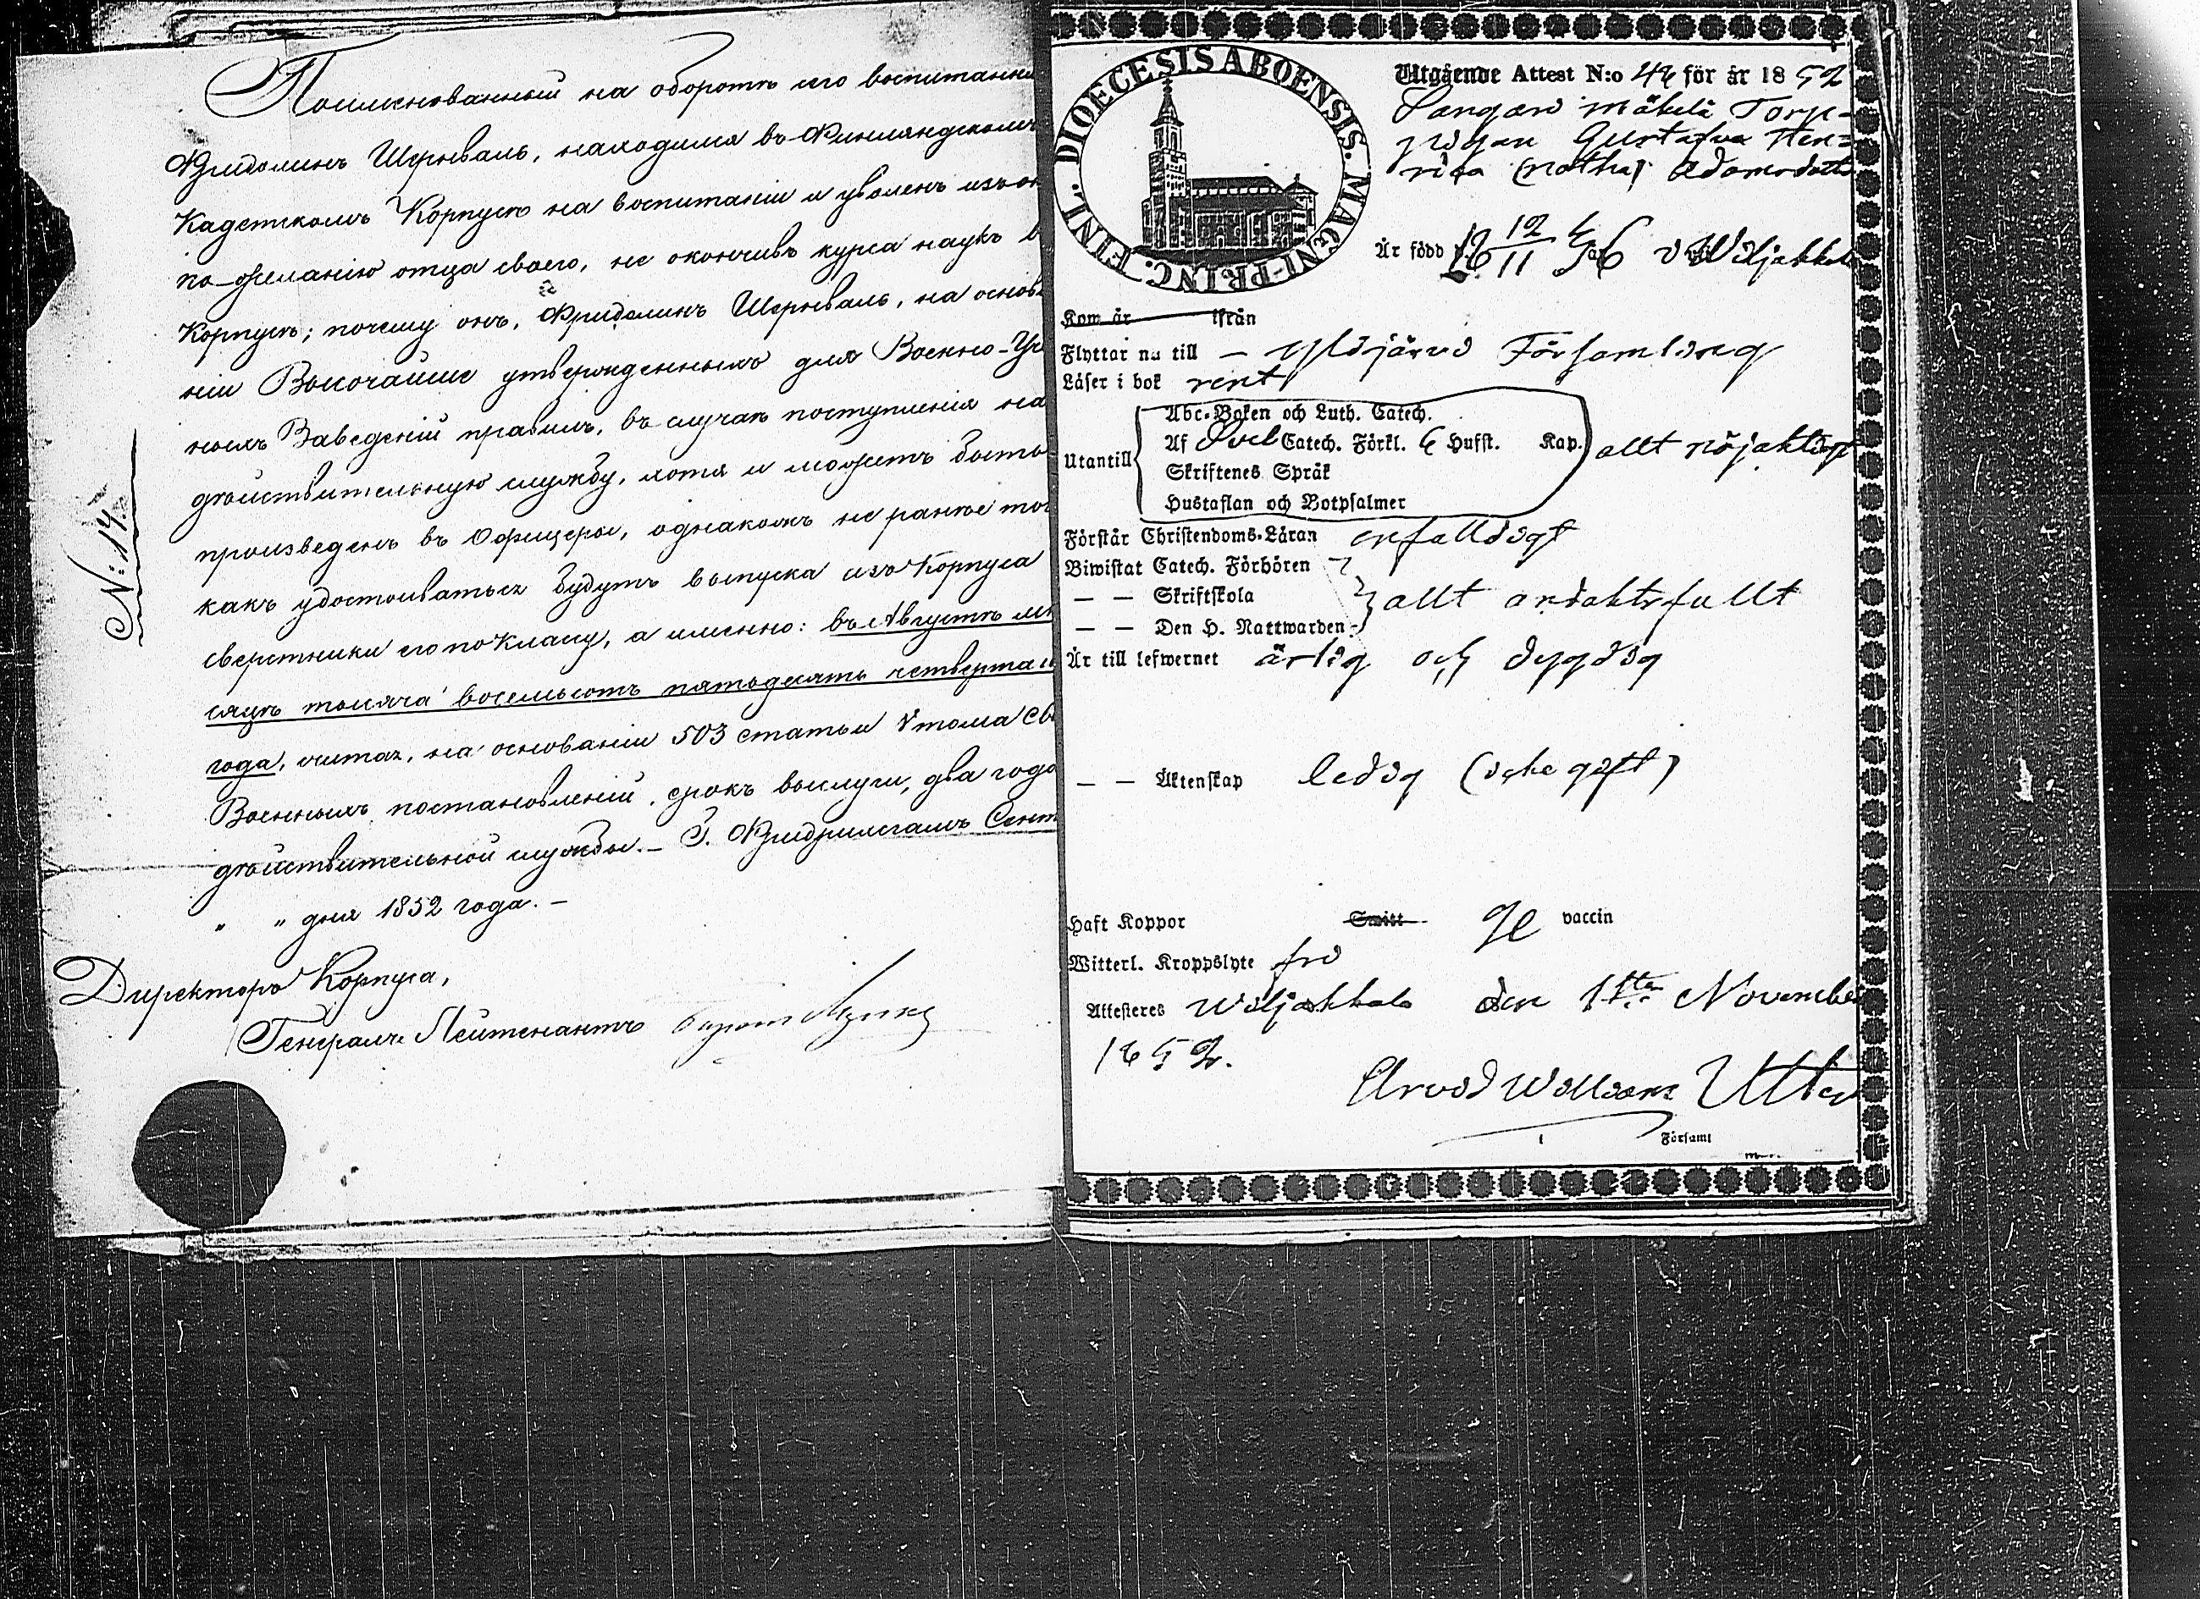 Поименованный на оборотѣ сего воспитанни
Фридолинъ Шернваль, находился въ Финляндскомъ
Кадетскомъ Корпусѣ на воспитаніи и уволенъ изъ он
по желанію отца своего, не окончивъ курса наукъ в
Корпусѣ; почему онъ, Фридолинъ Шернваль, на основа
ніи Высочайше утвержденныхъ для Военно-Уч
ныхъ Заведеній правилъ, въ случаѣ поступленія на
дѣйствительную службу, хотя и можетъ быть
произведенъ въ Офицеры, однакожъ не ранѣе то
какъ удостоиваться будутъ выпуска изъ Корпуса
сверстники его по классу, а именно: въ Августѣ мѣ
сяцѣ тысяча восемьсотъ пятьдесятъ четвертаго
года, считая, на основаніи 503 статьи V тома Св
Военныхъ постановленій, срокъ выслуги, два года
дѣйствительной службы. — Г. Фридрихсгамъ Сент
„ „ дня 1852 года. —
Директоръ Корпуса,
Генералъ Лейтенантъ
N: 14.
DIOECESIS ABOENSIS. MAGNI-PRINC. FINL.
Utgående Attest N:o 44 för år 1852
Mäkelä Torp-
pigan Gustafva Hen=
rica Adamsdotte
Är född 18 12/11 Wiljakkala
Kom år ifrån
Flyttar nu till — Ylöjärvi Församling
Läser i bok rent
Utantill
Abc-Boken och Luth. Catech.
Af Svel Catech. Förkl. 6 Hufst. Kap.
Skriftenes Språk
Hustaflan och Botpsalmer
allt nöjaktigt
Förstår Christendoms-Läran enfalldigt
Biwistat Catech. Förhören
— — Skriftskola
— — Den H. Nattwarden
allt andaktsfullt
Är till lefwernet ärlig och dygdig
— — Äktenskap ledig (icke gift)
Haft Koppor Smitt vaccin
Witterl. Kroppslyte fri
Attesteres Wiljakkala den 1sta November
1852.
Arvid William
Församl